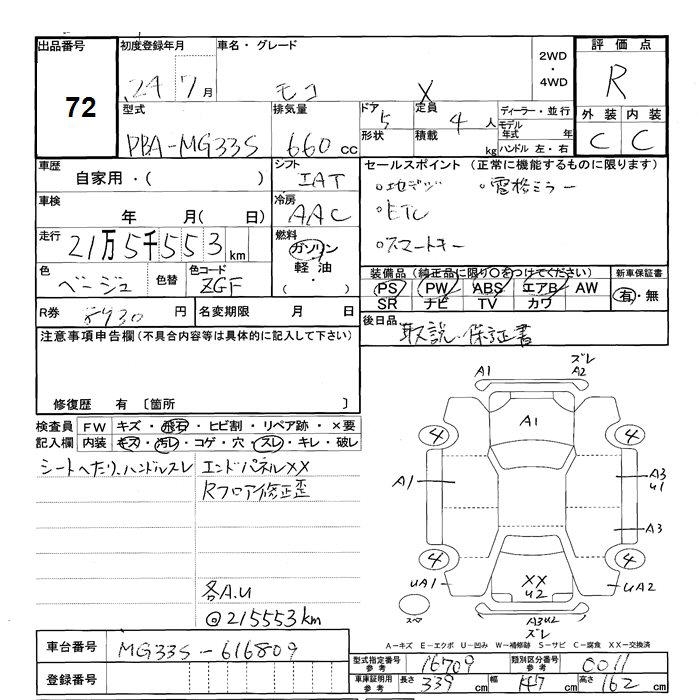 出品番号
72
初度登録年月
24 7 月
車名・グレード
モコ X
2WD
・
4WD
評価点
R
外装 内装
C C
型式
DBA-MG33S
排気量
660 cc
ドア 5
形状
定員 4 人
積載 kg
ディーラー・並行
モデル年式 年
ハンドル 左・右
車歴
自家用・( )
シフト
IAT
セールスポイント (正常に機能するものに限ります)
。地デジ 。電格ミラー
。ETC
。スマートキー
車検
年 月( 日)
冷房
AAC
走行
21万5千553 km
燃料
ガソリン
軽油
( ・ )
色
ベージュ
色替
色コード
ZGF
装備品 (純正品に限り〇をつけてください)
PS PW ABS エアB AW
SR ナビ TV カワ
新車保証書
有・無
R券 8930 円
名変期限 月 日
後日品
取説・保証書
注意事項申告欄(不具合内容等は具体的に記入して下さい)
修復歴 有 〔箇所 〕
検査員
記入欄
FW キズ・飛石・ヒビ割・リペア跡・×要
内装 キズ・汚レ・コゲ・穴・スレ・キレ・破レ
シートへたり、ハンドルスレ
エンドパネルXX
Rフロア修正歪
各A.U
◎215553km
A1
ズレ
A2
A1
4
4
A1
A3
U1
A3
4
4
UA1
XX
U2
UA2
スペア
A3U2
ズレ
A-キズ E-エクボ U-凹み W-補修跡 S-サビ C-腐食 XX-交換済
車台番号
MG33S-616809
登録番号
型式指定番号 参考
16709
類別区分番号 参考
0011
車庫証明用 参考
長さ 339 cm 幅 147 cm 高さ 162 cm